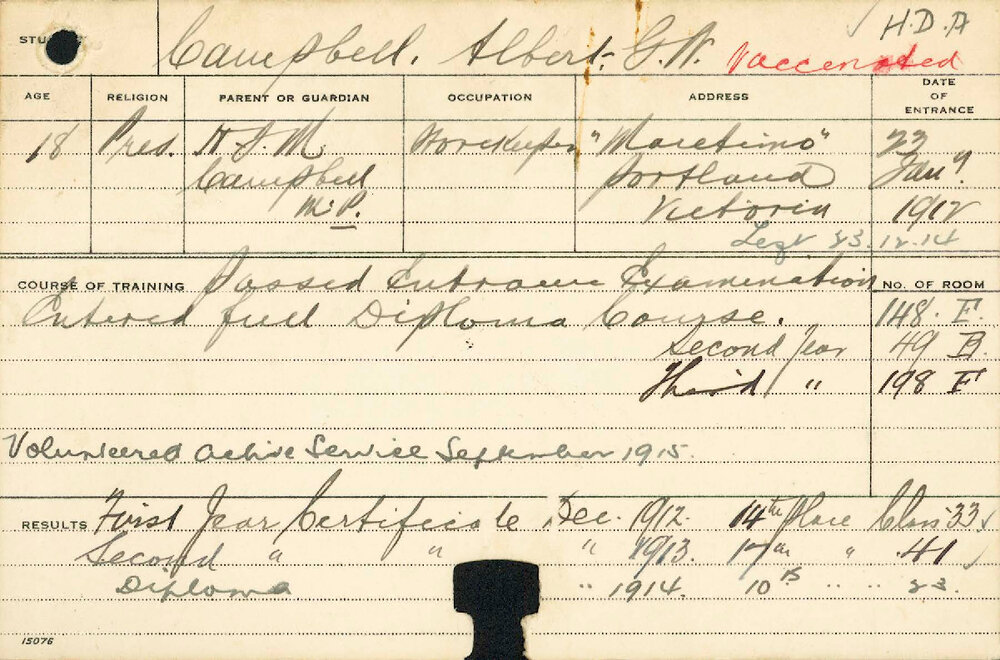 H.D.A
STU Campbell. Albert. G.W. Vaccinated
AGE RELIGION PARENT OR GUARDIAN OCCUPATION ADDRESS DATE OF ENTRANCE
18 Pres. "Maretimo" 23
Campbell Portland Jany.
M.P. Victoria 1912
Left 23.12.14
COURSE OF TRAINING Passed Entrance Examination No. OF ROOM
Entered full Diploma Course. 148. F.
Second Year 49 B.
Third " 198 F
Volunteered active Service September 1915.
RESULTS First Year Certificate Dec. 1912. 14th Place Class 33
Second " " " 1913. 17th " 41
Diploma " 1914. 10th " " 23.
15076